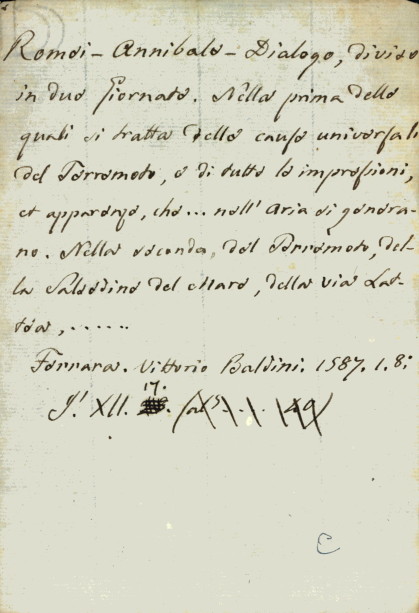 Romei - Annibale - Dialogo, diviso
in due Giornate. Nella prima delle
quali si tratta delle cause universali
del Terremoto, e di tutte le impressioni,
et apparenze, che ... nell' Aria si genera-
no. Nella seconda, del Terremoto, del-
la Salsedine del Mare, della via Lat-
tea, ......
Ferrara. Vittorio Baldini. 1587. 1. 8:
17.
J.' XII.
C